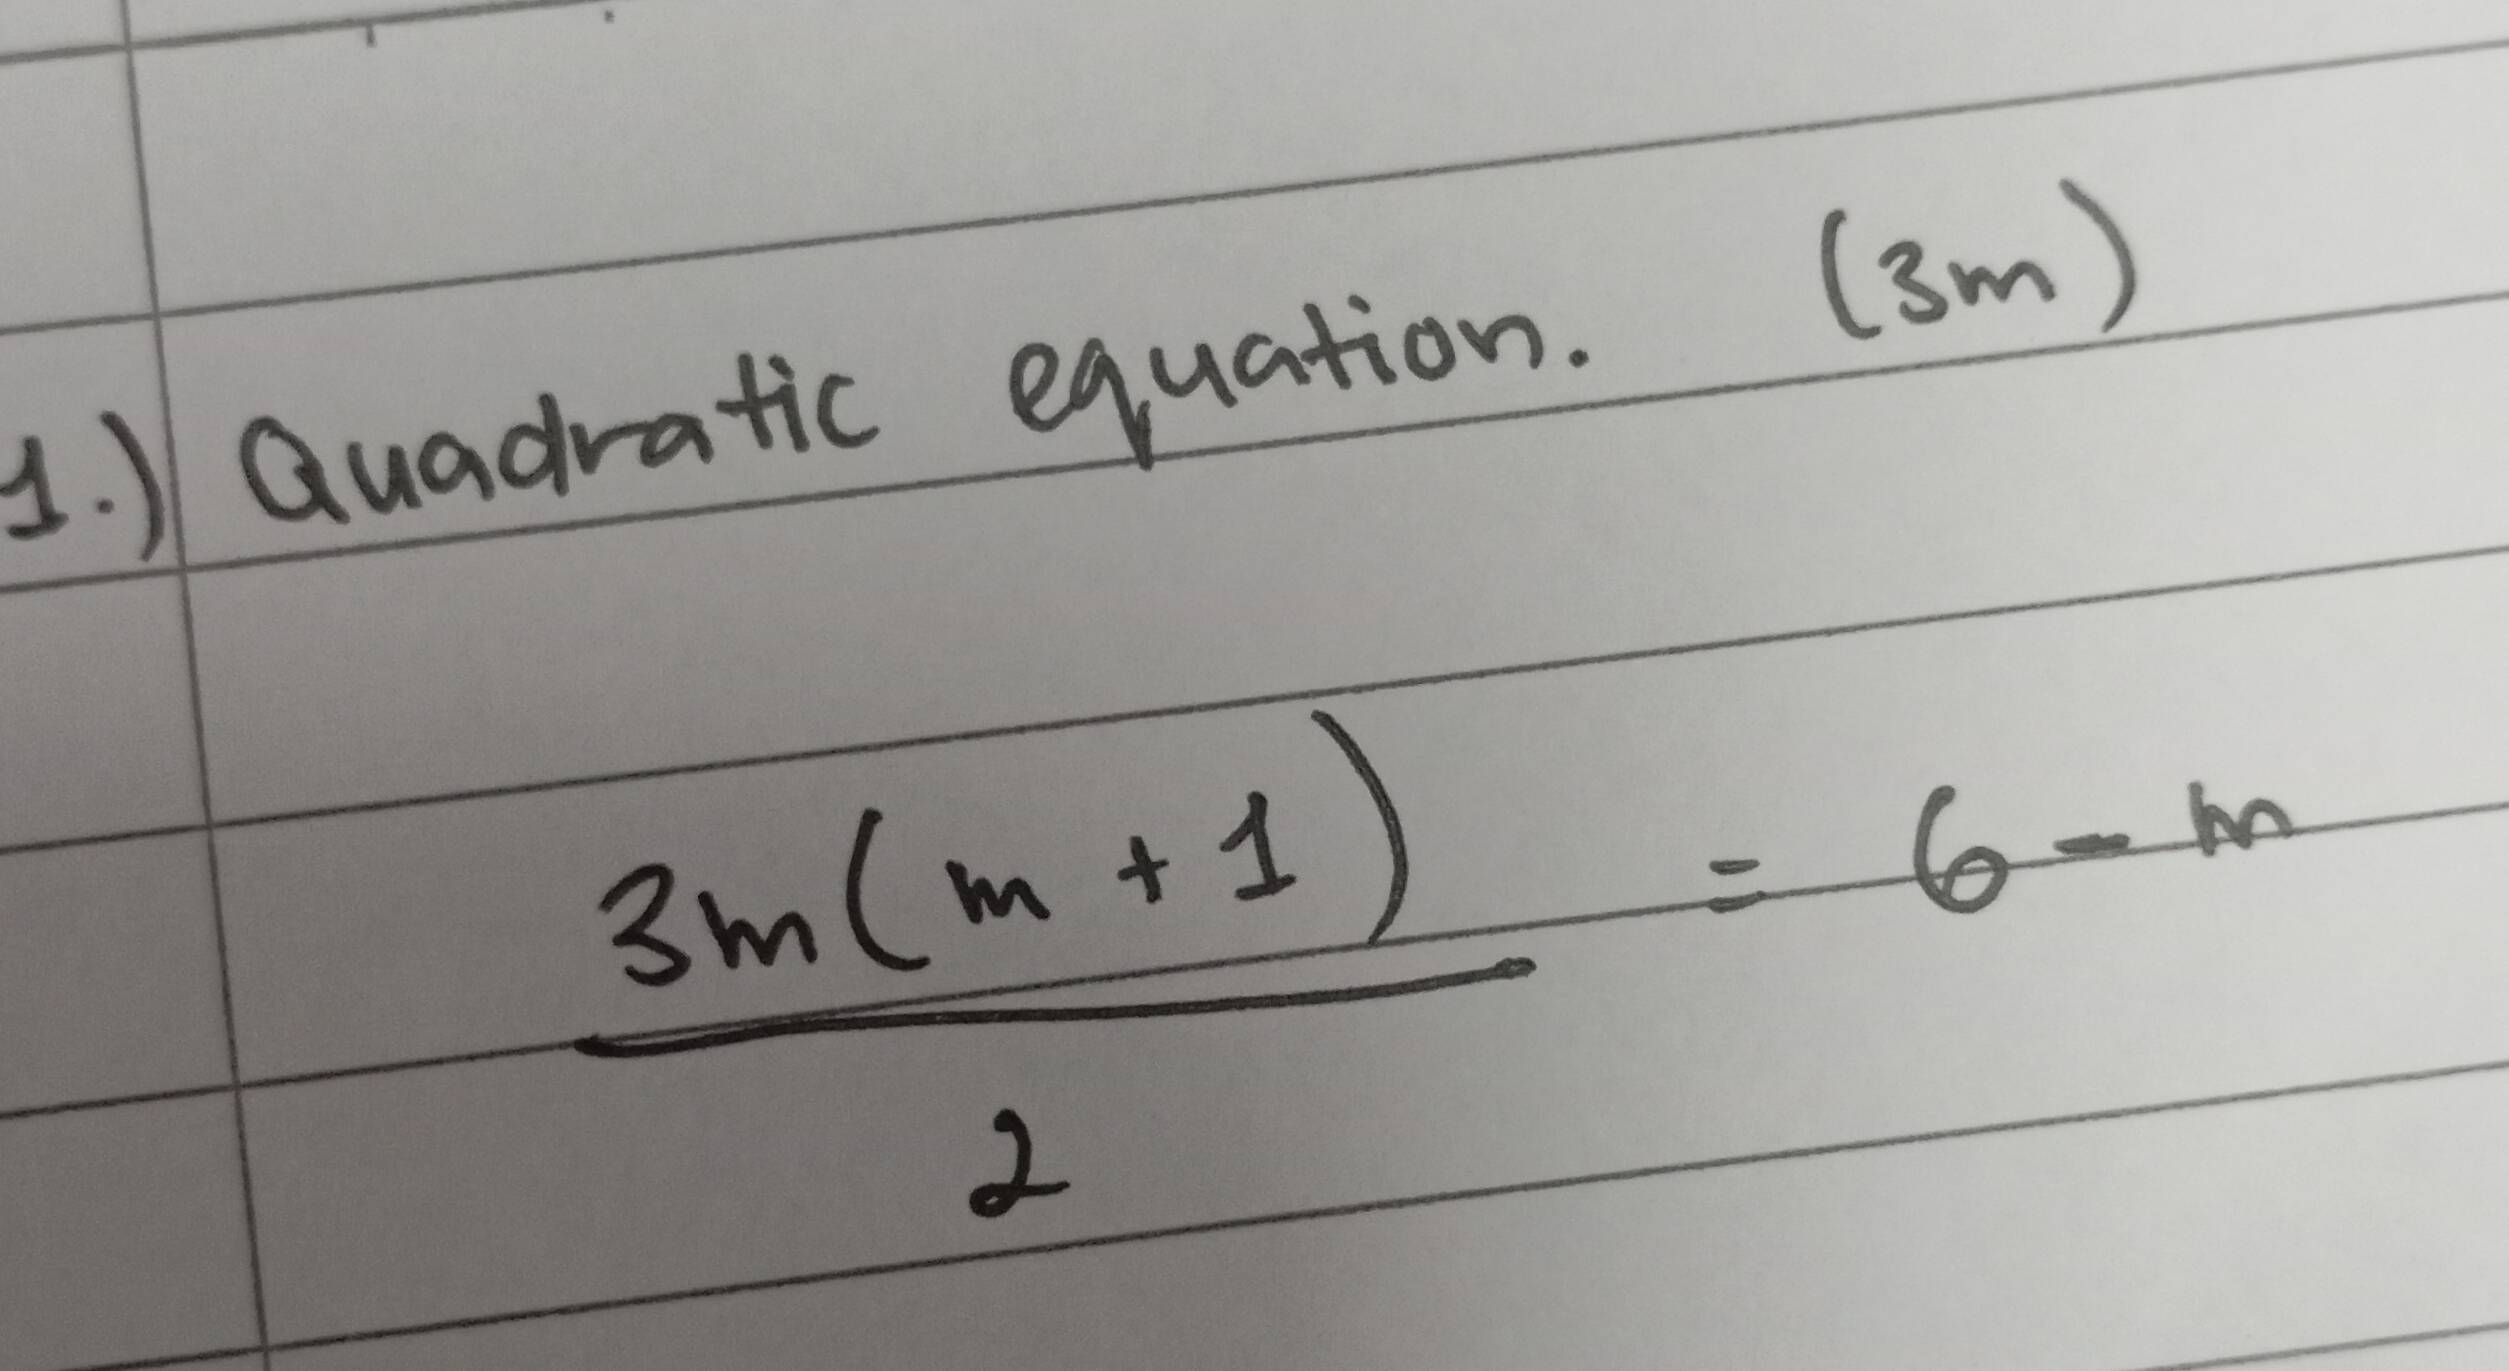 1.) Quadratic equation. (3m)
3m(m + 1) = 6 - m
2